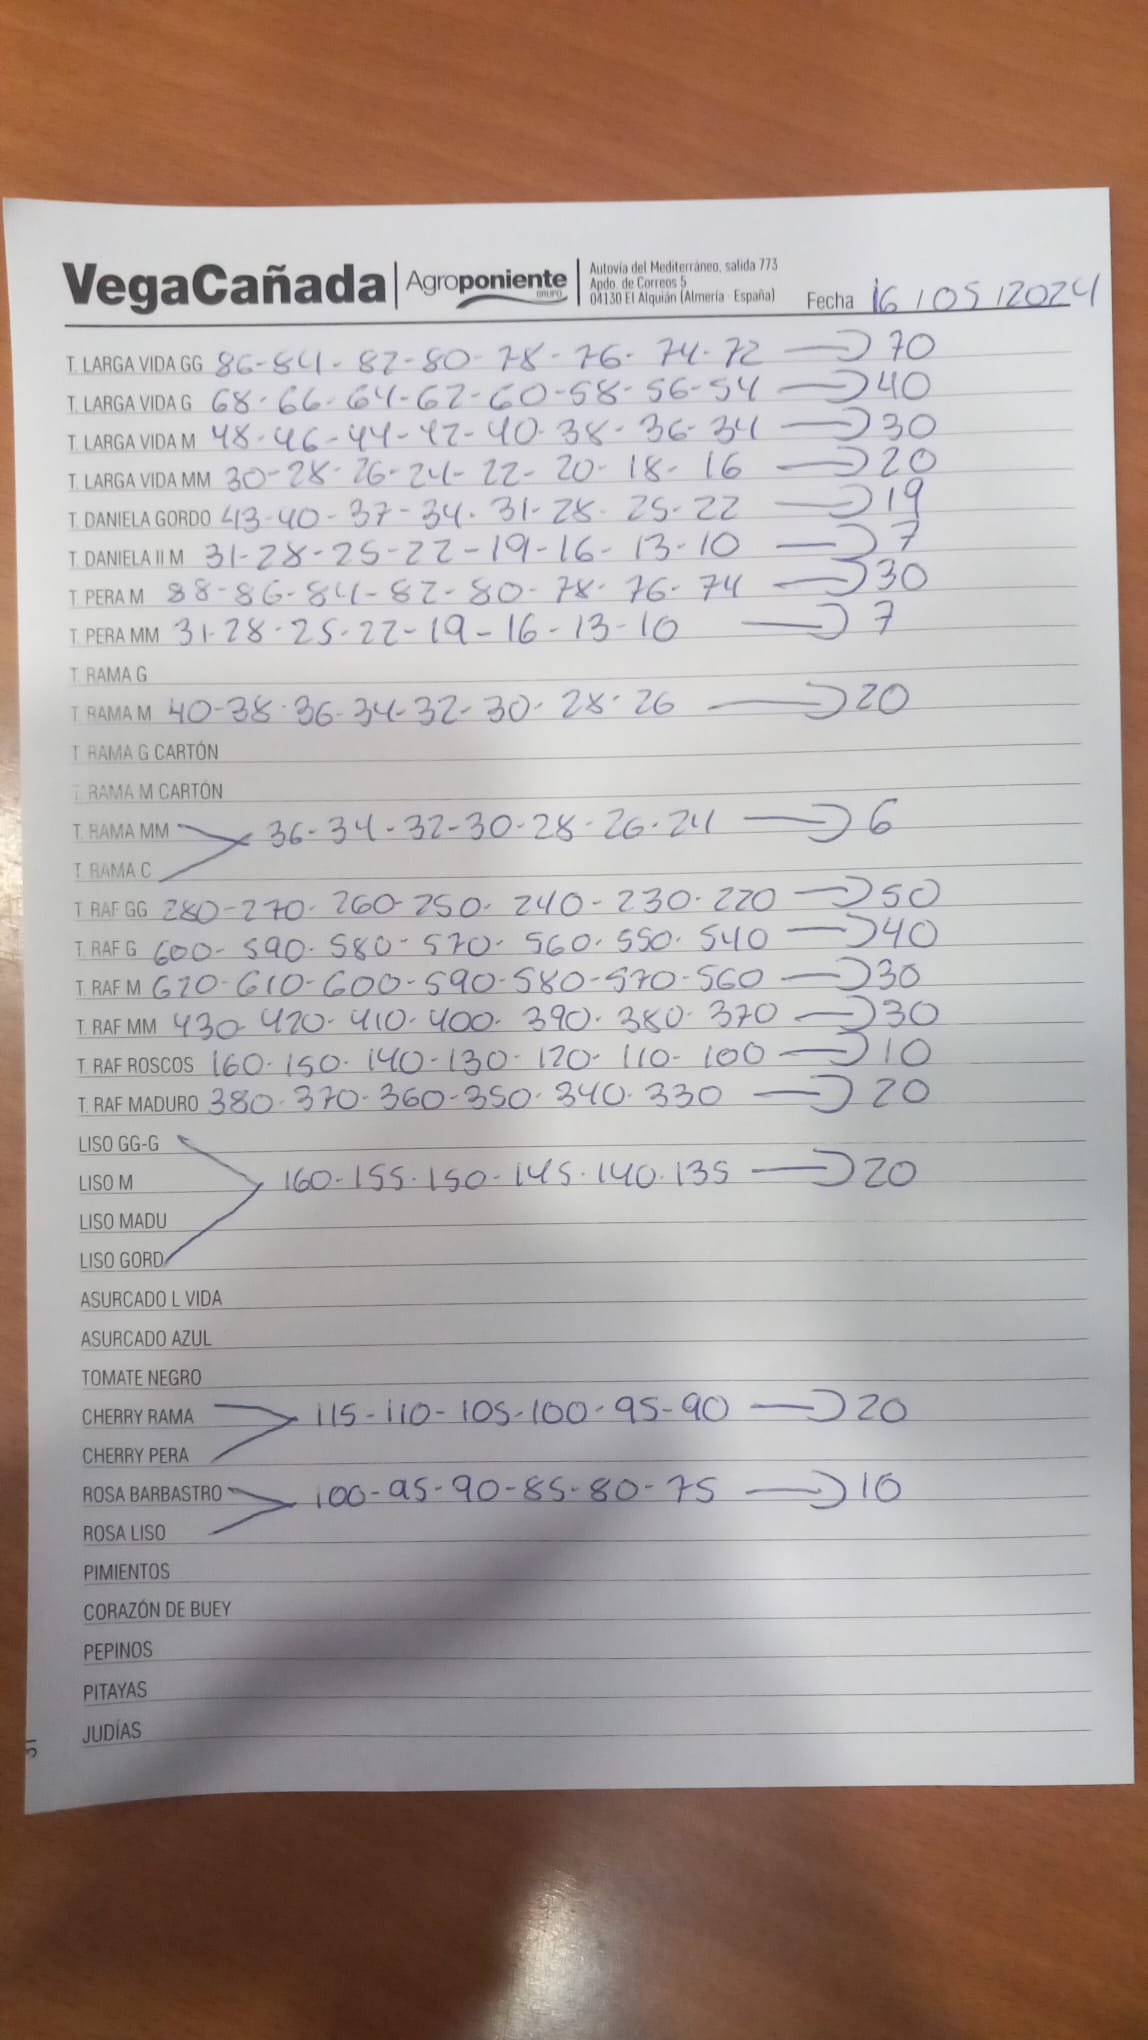 VegaCañada Agroponiente GRUPO
Autovía del Mediterráneo, salida 773
Apdo. de Correos 5
04130 El Alquián (Almería - España)
Fecha 16/05/2024
T. LARGA VIDA GG 86-84-82-80-78-76-74-72 → 70
T. LARGA VIDA G 68-66-64-62-60-58-56-54 → 40
T. LARGA VIDA M 48-46-44-42-40-38-36-34 → 30
T. LARGA VIDA MM 30-28-26-24-22-20-18-16 → 20
T. DANIELA GORDO 43-40-37-34-31-28-25-22 → 19
T. DANIELA II M 31-28-25-22-19-16-13-10 → 7
T. PERA M 88-86-84-82-80-78-76-74 → 30
T. PERA MM 31-28-25-22-19-16-13-10 → 7
T. RAMA G
T. RAMA M 40-38-36-34-32-30-28-26 → 20
T. RAMA G CARTÓN
T. RAMA M CARTÓN
T. RAMA MM 36-34-32-30-28-26-24 → 6
T. RAMA C
T. RAF GG 280-270-260-250-240-230-220 → 50
T. RAF G 600-590-580-570-560-550-540 → 40
T. RAF M 620-610-600-590-580-570-560 → 30
T. RAF MM 430-420-410-400-390-380-370 → 30
T. RAF ROSCOS 160-150-140-130-120-110-100 → 10
T. RAF MADURO 380-370-360-350-340-330 → 20
LISO GG-G
LISO M 160-155-150-145-140-135 → 20
LISO MADU
LISO GORD
ASURCADO L VIDA
ASURCADO AZUL
TOMATE NEGRO
CHERRY RAMA 115-110-105-100-95-90 → 20
CHERRY PERA
ROSA BARBASTRO 100-95-90-85-80-75 → 10
ROSA LISO
PIMIENTOS
CORAZÓN DE BUEY
PEPINOS
PITAYAS
JUDÍAS